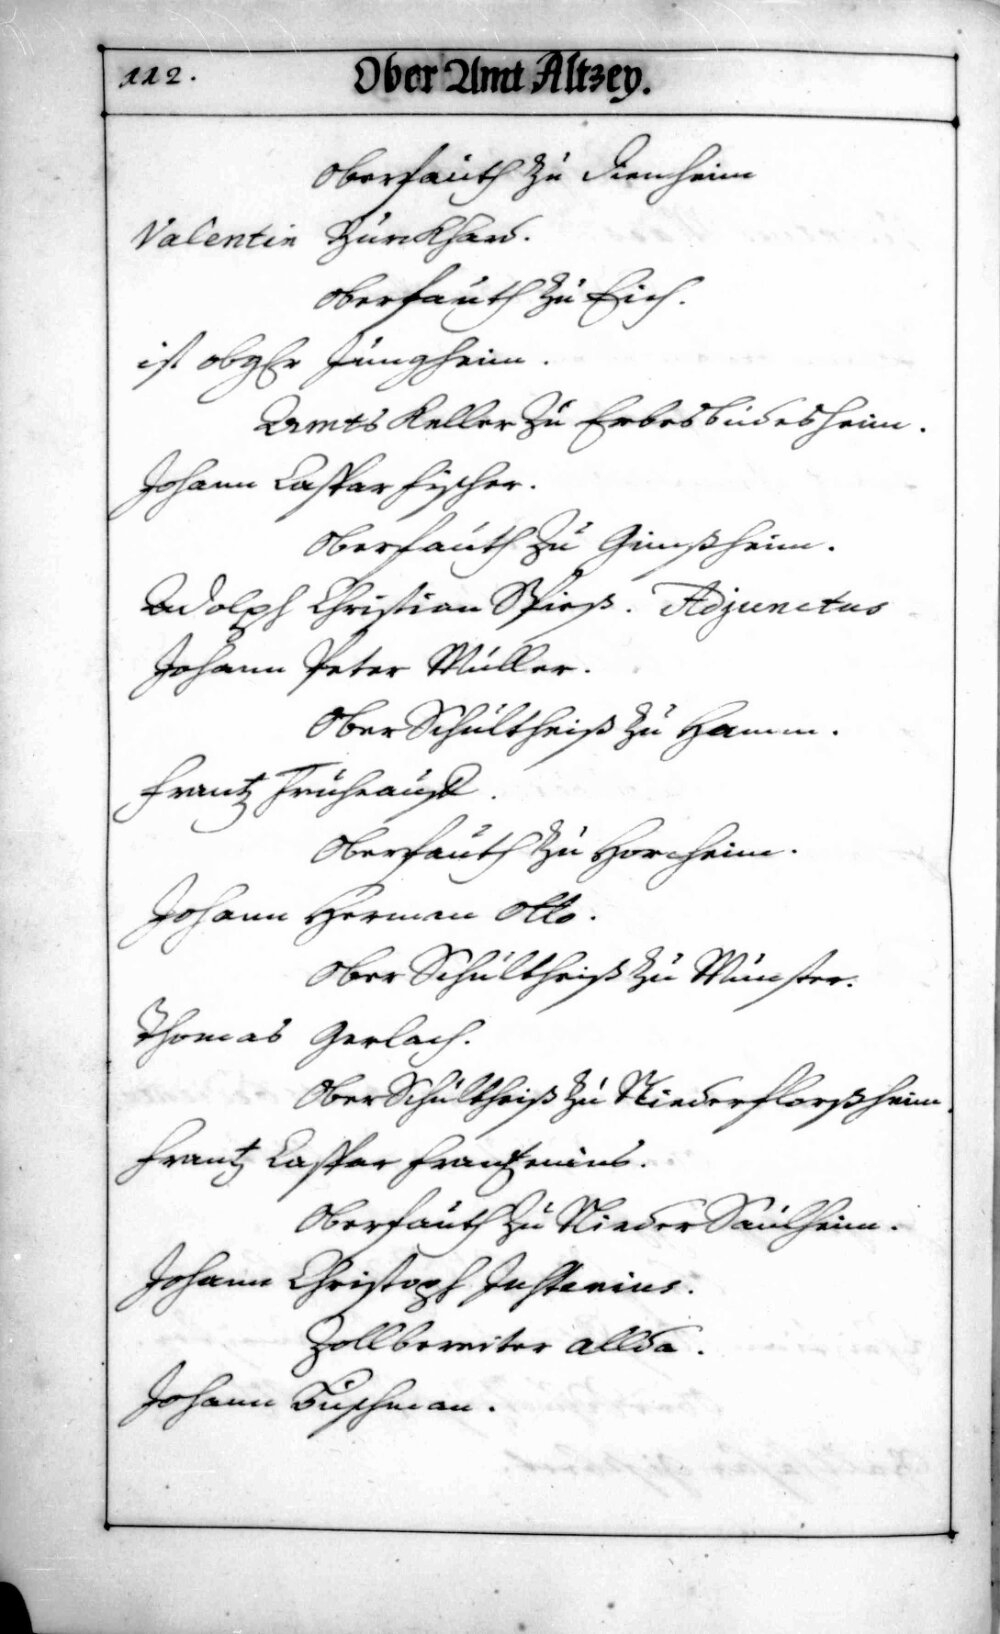 112.
Ober Amt Altzey.
Oberfauth zu Dienheim
Valentin
Oberfauth zu Eich.
ist obgster Jungheim.
Ambts Keller zu Erbesbüdesheim.
Johann Caspar Fischer.
Oberfauth zu Gimßheim.
Adolph Christian Spieß. Adjunctus
Johann Peter Müller.
Ober Schultheiß zu Hamm.
Frantz
Oberfauth zu Horcheim.
Johann Herman Otto.
Ober Schultheiß zu Münster.
Thomas Gerlach.
Ober Schultheiß zu Niederflorßheim.
Frantz Caspar
Oberfauth zu Nieder Saulheim.
Johann Christoph
Zollbereiter allda.
Johann Buschman.